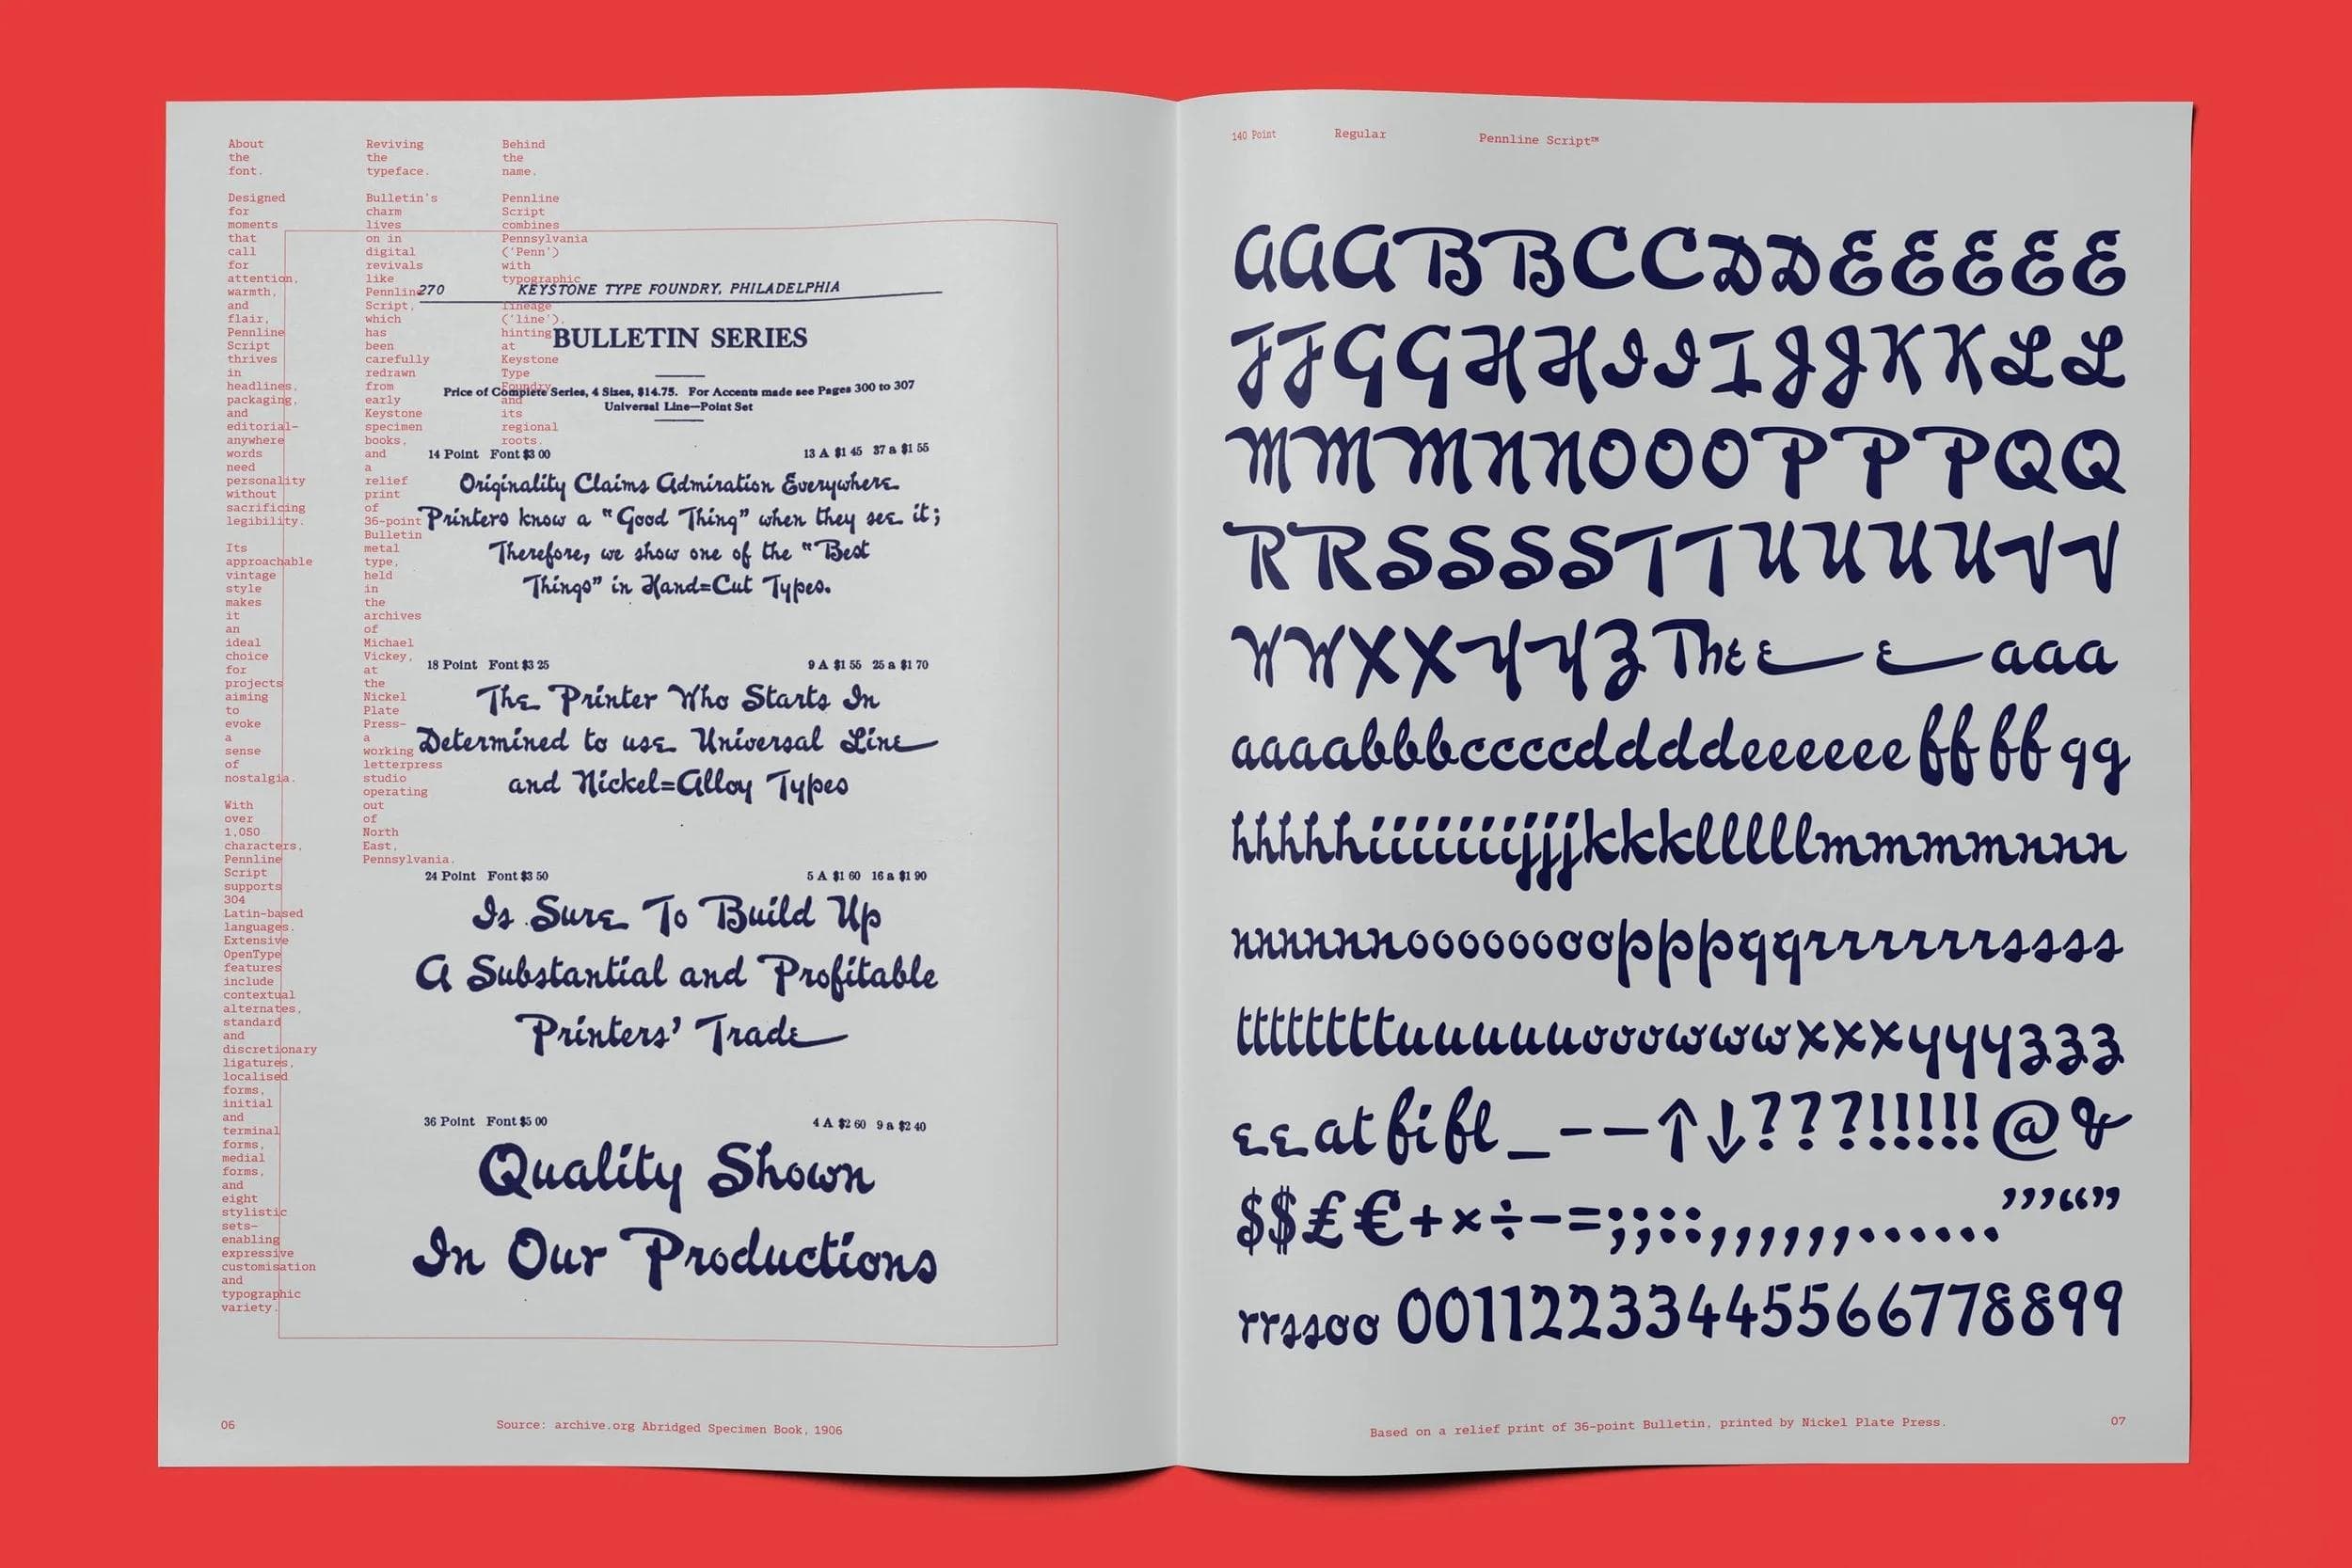 About
the
font.
Designed
for
moments
that
call
for
attention,
warmth,
and
flair,
Pennline
Script
thrives
in
headlines,
packaging,
and
editorial–
anywhere
words
need
personality
without
sacrificing
legibility.
Its
approachable
vintage
style
makes
it
an
ideal
choice
for
projects
aiming
to
evoke
a
sense
of
nostalgia.
With
over
1,050
characters,
Pennline
Script
supports
304
Latin-based
languages.
Extensive
OpenType
features
include
contextual
alternates,
standard
and
discretionary
ligatures,
localised
forms,
initial
and
terminal
forms,
medial
forms,
and
eight
stylistic
sets–
enabling
expressive
customisation
and
typographic
variety.
Reviving
the
typeface.
Bulletin's
charm
lives
on in
digital
revivals
like
Pennline
Script,
which
has
been
carefully
redrawn
from
early
Keystone
specimen
books,
and
a
relief
print
of
36-point
Bulletin
metal
type,
held
in
the
archives
of
Michael
Vickey,
at
the
Nickel
Plate
Press–
a
working
letterpress
studio
operating
out
of
North
East,
Pennsylvania.
Behind
the
name.
Pennline
Script
combines
Pennsylvania
('Penn')
with
typographic
lineage
('line'),
hinting
at
Keystone
Type
Foundry
and
its
regional
roots.
270 KEYSTONE TYPE FOUNDRY, PHILADELPHIA
BULLETIN SERIES
Price of Complete Series, 4 Sizes, $14.75. For Accents made see Pages 300 to 307
Universal Line—Point Set
14 Point Font $3 00 13 A $1 45 37 a $1 55
Originality Claims Admiration Everywhere
Printers know a “Good Thing” when they see it;
Therefore, we show one of the “Best
Things” in Hand=Cut Types.
18 Point Font $3 25 9 A $1 55 25 a $1 70
The Printer Who Starts In
Determined to use Universal Line
and Nickel=Alloy Types
24 Point Font $3 50 5 A $1 60 16 a $1 90
Is Sure To Build Up
A Substantial and Profitable
Printers’ Trade
36 Point Font $5 00 4 A $2 60 9 a $2 40
Quality Shown
In Our Productions
06 Source: archive.org Abridged Specimen Book, 1906
140 Point Regular Pennline Script™
AAABBCCDDEEEEE
FFGGHHIIIJJKKLL
MMMNNOOOPPPQQ
RRSSSSTTUUUUVV
WWXXYYZ The e e aaa
aaaabbbccccddddeeeeee ff ff gg
hhhhhiiiiiiijjjkkklllllmmmmnnn
nnnnnnooooooooopppqqrrrrrrrssss
ttttttttuuuuuuvvvwwwxxxyyyzzz
ee at fi fl _ – — ↑↓???!!!!!!@&
$$£€+×÷−=;;::,,,,,,,.......’’’“”
rrssoo 00112233445566778899
Based on a relief print of 36-point Bulletin, printed by Nickel Plate Press. 07